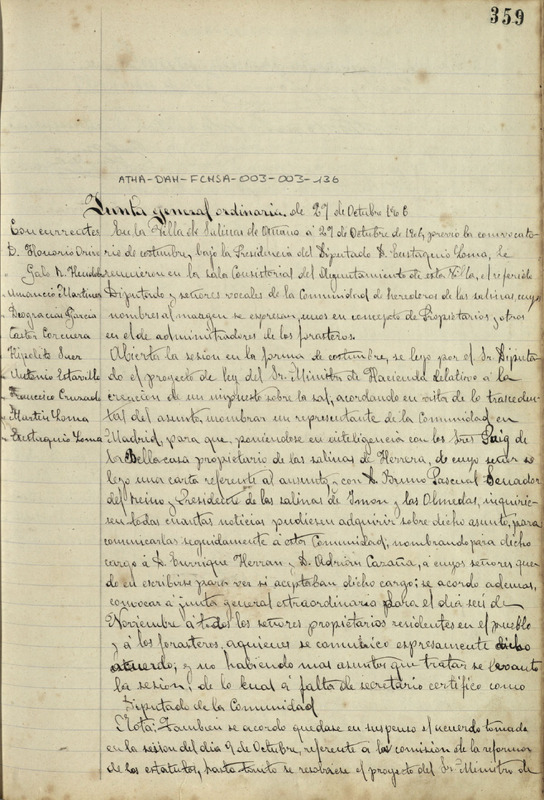 359
ATHA-DAH-FCHSA-003-003-136
Junta general ordinaria de 27 de Octubre 190
Concurrentes
D. Honorio Orive
Gabl N. Heredia
Amancio Martinez
Deogracias Garcia
Castor Corcuera
Hipolito Saez
Antonio Estavillo
Francisco Cruzado
Martin Loma
Eustaquio Loma
En la Villa de Salinas de Añana a 27 de Octubre de 190 previo la convocato-
ria de costumbre, bajo la Presidencia del Diputado D. Eustaquio Loma, se
reunieron en la sala Consistorial del Ayuntamiento de esta Villa, el referido
Diputado y señores vocales de la Comunidad de herederos de las salinas, cuyos
nombres al margen se expresan, unos en concepto de Propietarios y otros
en el de administradores de los forasteros.
Abierta la sesión en la forma de costumbre, se leyo por el Sr. Diputa-
do el proyecto de ley del Sr. Ministro de Hacienda relativo á la
creacion de un impuesto sobre la sal, acordando en vista de lo trascenden-
tal del asunto, nombrar un representante de la Comunidad en
Madrid, para que, poniendose en inteligencia con los Sres Puig de
la Bellacasa propietario de las salinas de Herrera, de cuyo señor se
leyo una carta referente al asunto, y con D. Bruno Pascual Senador
del Reino y Presidente de las salinas de Imon y las Olmedas, inquirie-
sen todas cuantas noticias pudiesen adquirir sobre dicho asunto, para
comunicarlas seguidamente á esta Comunidad, nombrando para dicho
cargo á D. Enrrique Herran y D. Adrian Caraña, a cuyos señores que-
do en escribirse para ver si aceptaban dicho cargo; se acordo ademas,
convocar a junta general extraordinaria para el dia seis de
Noviembre a todos los señores propietarios residentes en el pueblo
y á los forasteros, aquienes se comunico expresamente dicho
acuerdo; y no habiendo mas asuntos que tratar se levanto
la sesion; de lo cual á falta de secretario certifico como
Diputado de la Comunidad
Nota: Tambien se acordo quedase en suspenso el acuerdo tomado
en la sesion del dia 9 de Octubre, referente á la comision de la reforma
de los estatutos, hasta tanto se resolviese el proyecto del Sr. Ministro de